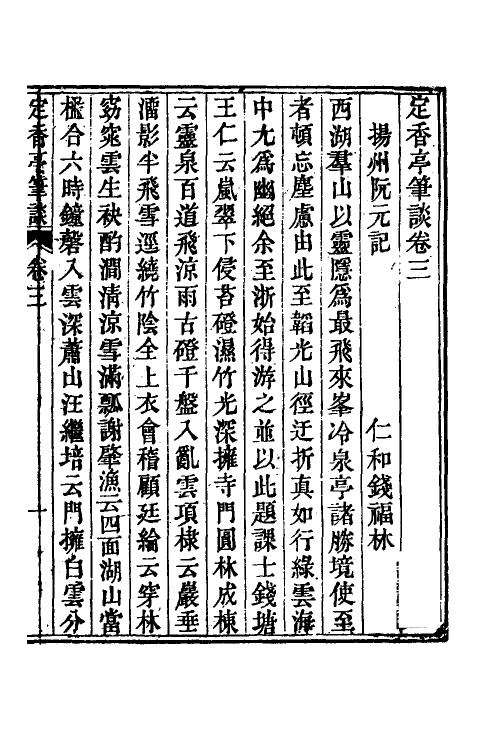 定香亭筆談卷三
揚州阮元記　仁和錢福林
西湖羣山以靈隱爲最飛來峯冷泉亭諸勝境使至
者頓忘塵慮由此至韜光山徑迂折真如行綠雲海
中尤爲幽絕余至浙始得游之並以此題課士錢塘
王仁云嵐翠下侵苔磴濕竹光深擁寺門圓林成棟
云靈泉百道飛涼雨古磴千盤入亂雲項棣云巖垂
濤影半飛雪逕繞竹陰全上衣會稽顧廷綸云穿林
窈窕雲生袂酌澗清涼雪滿瓢謝肇漁云四面湖山當
檻合六時鐘磬入雲深蕭山汪繼培云門擁白雲分
定香亭筆談　卷三　一